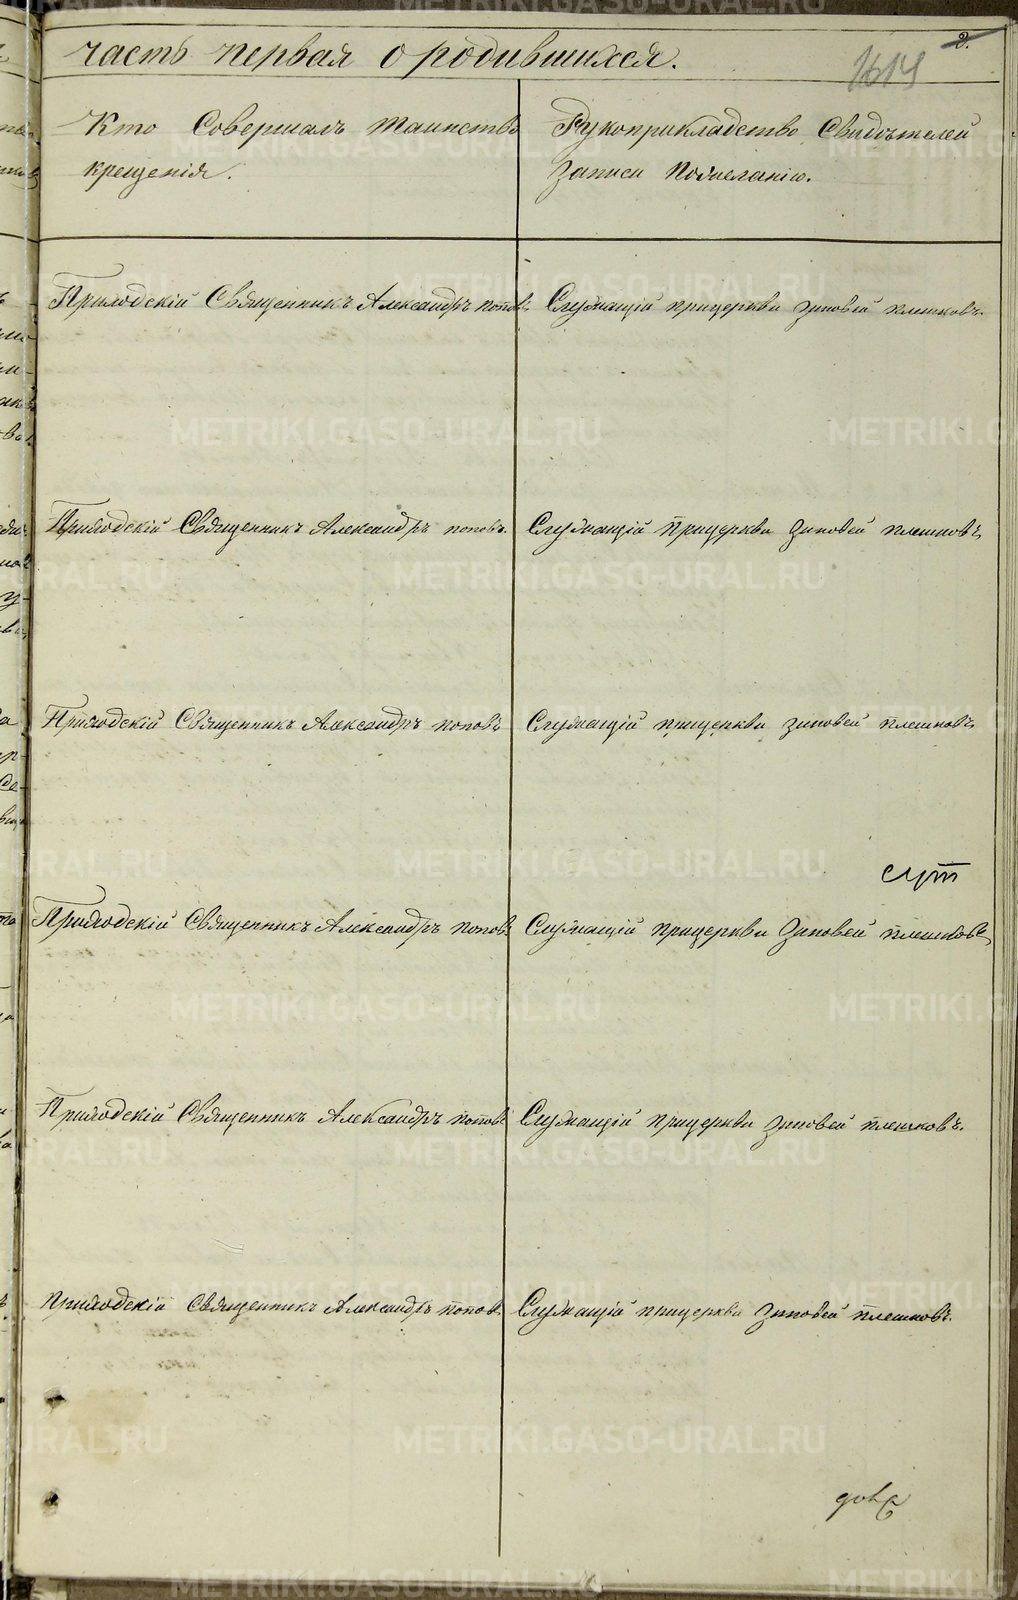 часть первая о родившихся.
2.
1614
Кто Совершалъ таинство
крещенія.
Рукоприкладство Свидѣтелей
записи по желанію.
Приходскій Священникъ Александръ поповъ
Служащій прицеркви Зиновей плешковъ.
Приходскій Священникъ Александръ поповъ.
Служащій прицеркви Зиновей плешковъ
Приходскій Священникъ Александръ поповъ
Служащій прицеркви зиновей плешковъ
Приходскій Священникъ Александръ поповъ
Служащій прицеркви Зиновей плешковъ
Приходскій Священникъ Александръ поповъ
Служащій прицеркви Зиновей плешковъ.
приходскій священникъ Александръ поповъ
Служащій прицеркви Зиновей плешковъ.
METRIKI.GASO-URAL.RU